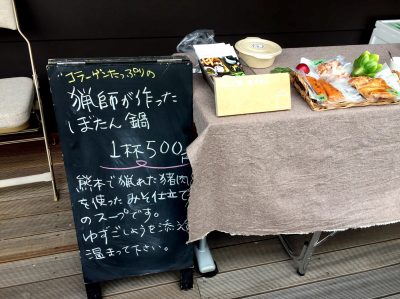 コラーゲンたっぷりの
猟師が作った
ぼたん鍋
1杯500円
熊本で猟れた猪肉
を使ったみそ仕立て
のスープです。
ゆずごしょうを添え
温まって下さい。